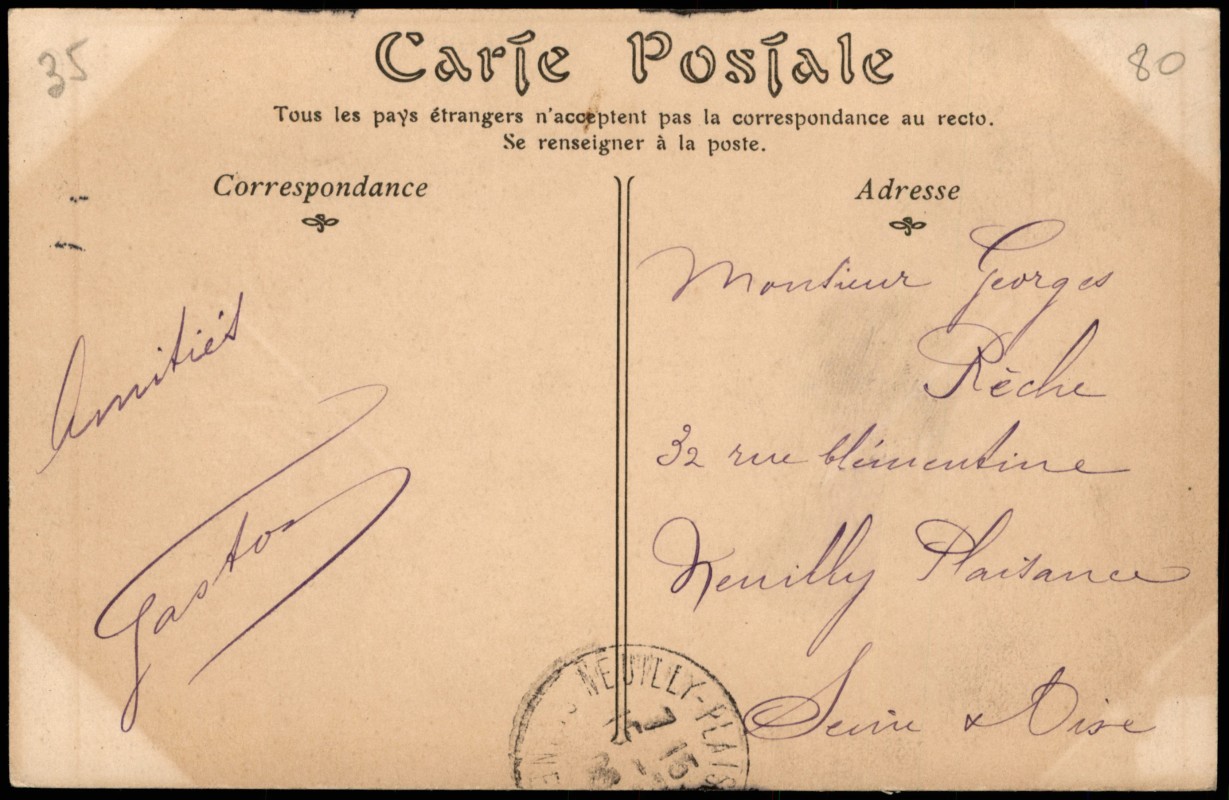 35
80
Carte Postale
Tous les pays étrangers n'acceptent pas la correspondance au recto.
Se renseigner à la poste.
Correspondance
Adresse
Amitiés
Gaston
Monsieur Georges
Rèche
32 rue Clémentine
Neuilly Plaisance
Seine & Oise
NEUILLY-PLAIS
7 15